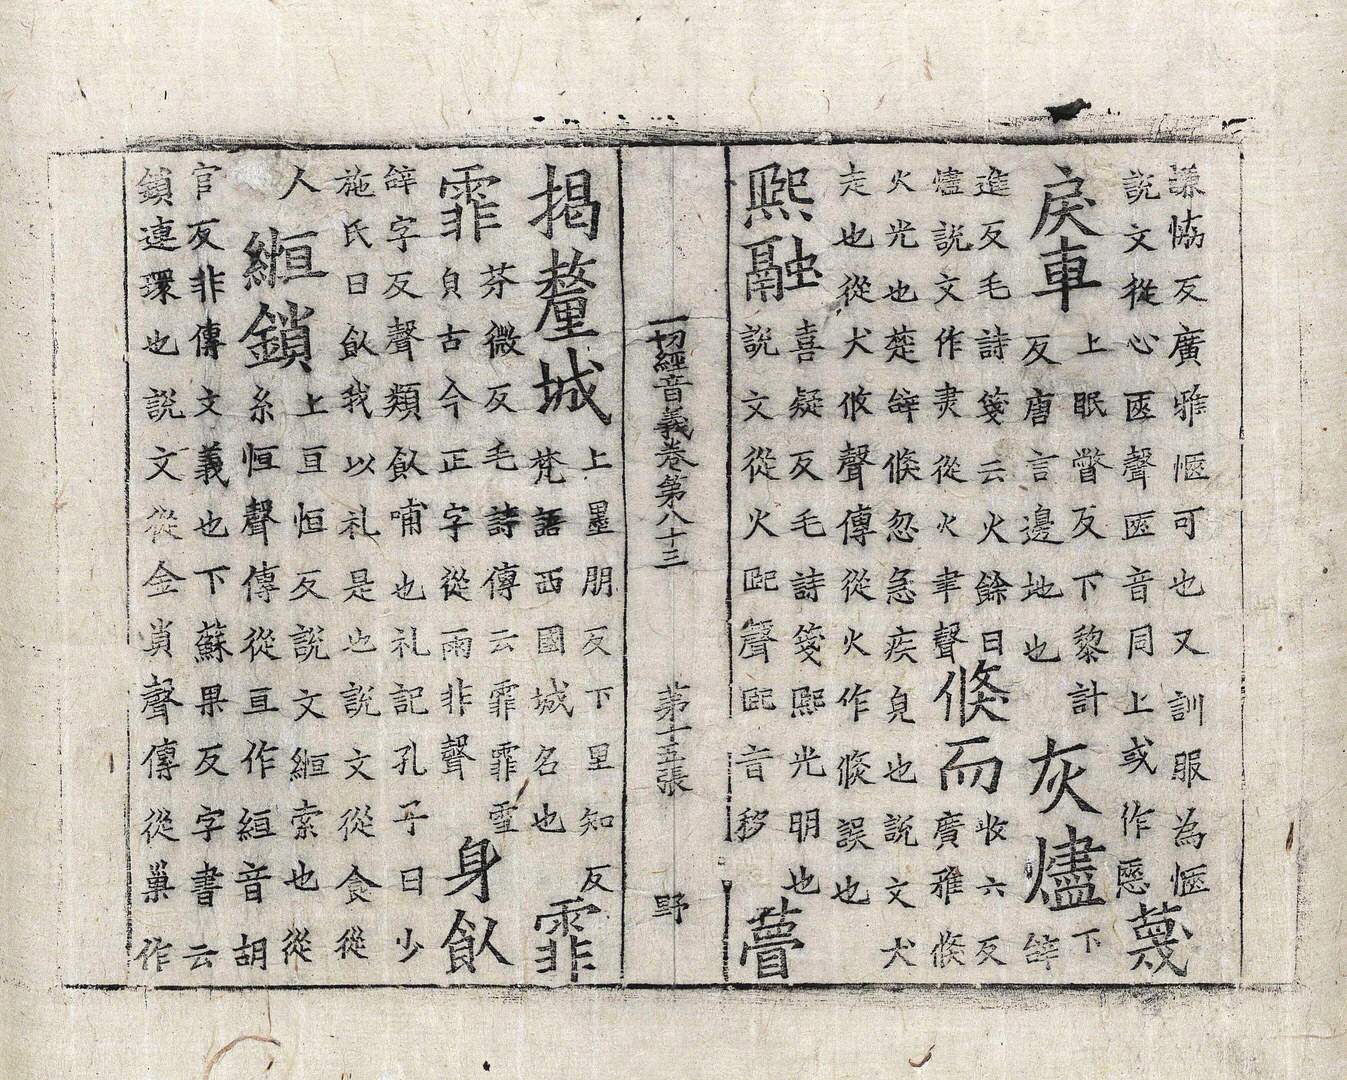 謙恊反廣雅愜可也又訓服為愜
説文從心匧聲匧音同上或作㥦
蔑
戾車
上眠瞥反下黎計
反唐言邊地也
灰燼
下
辝
進反毛詩箋云火餘曰
燼説文作㶳從火聿聲
倐而
收六反
廣雅倐
火光也楚辝倐忽急疾皃也説文犬
走也從犬攸聲傳從火作倐誤也
熙融
喜疑反毛詩箋熙光明也
説文從火巸聲巸音移
瞢
一切經音義卷第八十三 第十五張 野
揭釐城
上墨朋反下里知反
梵語西國城名也
霏
霏
芬微反毛詩傳云霏霏雪
皃古今正字從雨非聲
身飤
辝字反聲類飤哺也礼記孔子曰少
施氏曰飤我以礼是也説文從食從
人
緪鎖
上亘恒反説文緪索也從
糸恒聲傳從亘作絙音胡
官反非傳文義也下蘇果反字書云
鎖連環也説文從金𧴪聲傳從巢作